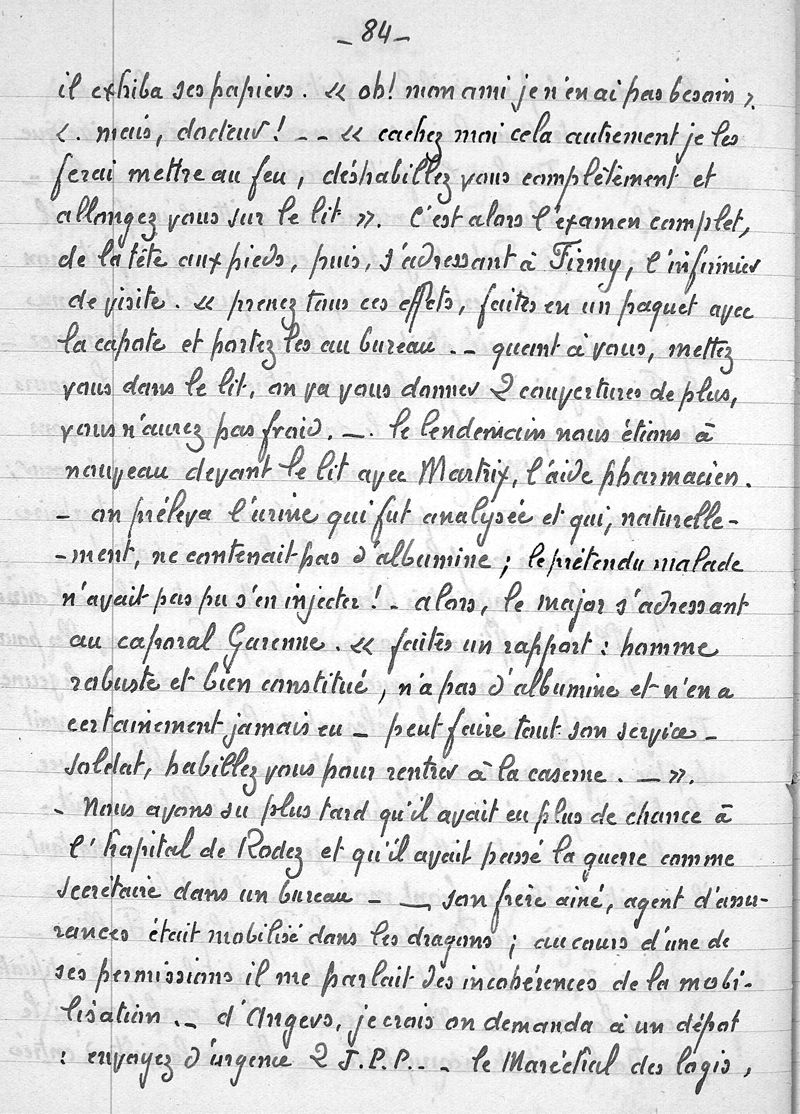 _ 84 _
il exhiba ses papiers. « oh! mon ami je n'en ai pas besoin ».
«. mais, docteur! - - « cachez moi cela autrement je les
ferai mettre au feu, déshabillez vous complètement et
allongez vous sur le lit ». C'est alors l'examen complet,
de la tête aux pieds, puis, s'adressant à Firmy, l'infirmier
de visite. « prenez tous ces effets, faites en un paquet avec
la capote et portez les au bureau. - - quant à vous, mettez
vous dans le lit, on va vous donner 2 couvertures de plus,
vous n'aurez pas froid. _ . le lendemain nous étions à
nouveau devant le lit avec Martrix, l'aide pharmacien.
- on préleva l'urine qui fut analysée et qui, naturelle-
-ment, ne contenait pas d'albumine ; le prétendu malade
n'avait pas pu s'en injecter! - alors, le major s'adressant
au caporal Garenne. « faites un rapport : homme
robuste et bien constitué, n'a pas d'albumine et n'en a
certainement jamais eu _ peut faire tout son service _
soldat, habillez vous pour rentrer à la caserne. _ ».
- Nous avons su plus tard qu'il avait eu plus de chance à
l'hopital de Rodez et qu'il avait passé la guerre comme
secrétaire dans un bureau - _, son frère ainé, agent d'assu-
rances était mobilisé dans les dragons ; au cours d'une de
ses permissions il me parlait des incohérences de la mobi-
lisation. _ d'Angers, je crois on demanda à un dépot
: envoyez d'urgence 2 J.P.P. - - le Maréchal des logis,